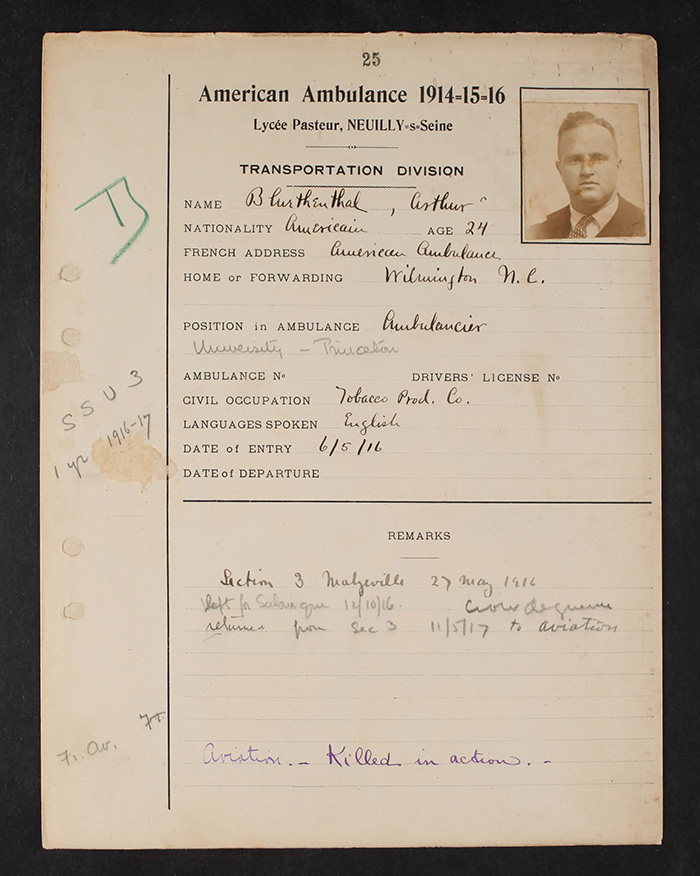 25
American Ambulance 1914=15=16
Lycée Pasteur, NEUILLY=s=Seine
TRANSPORTATION DIVISION
NAME Bluethenthal, Arthur
NATIONALITY Americain AGE 24
FRENCH ADDRESS American Ambulance
HOME or FORWARDING Wilmington N.C.
POSITION in AMBULANCE Ambulancier
University - Princeton
AMBULANCE No DRIVERS' LICENSE No
CIVIL OCCUPATION Tobacco Prod. Co.
LANGUAGES SPOKEN English
DATE of ENTRY 6/5/16
DATE of DEPARTURE
SSU 3
1 yr 1916-17
REMARKS
Section 3 Malzeville 27 May 1916
left for Salonique 12/10/16. Croix de guerre
returned from Sec 3 11/5/17 to aviation
Fr. Av.
Aviation. - Killed in action. -